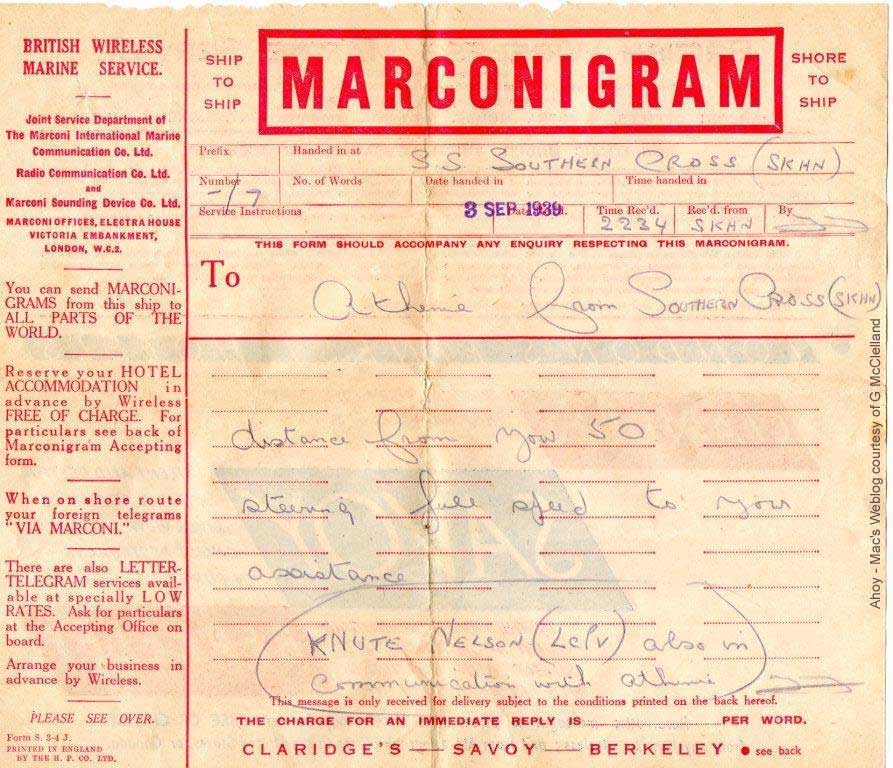 BRITISH WIRELESS
MARINE SERVICE.
Joint Service Department of
The Marconi International Marine
Communication Co. Ltd.
Radio Communication Co. Ltd.
and
Marconi Sounding Device Co. Ltd.
MARCONI OFFICES, ELECTRA HOUSE
VICTORIA EMBANKMENT,
LONDON, W.C.2.
You can send MARCONI-
GRAMS from this ship to
ALL PARTS OF THE
WORLD.
Reserve your HOTEL
ACCOMMODATION in
advance by Wireless
FREE OF CHARGE. For
particulars see back of
Marconigram Accepting
form.
When on shore route
your foreign telegrams
"VIA MARCONI."
There are also LETTER-
TELEGRAM services avail-
able at specially LOW
RATES. Ask for particulars
at the Accepting Office on
board.
Arrange your business in
advance by Wireless.
PLEASE SEE OVER.
Form S. 3-4 J.
PRINTED IN ENGLAND
BY THE H. P. CO. LTD.
SHIP
TO
SHIP
MARCONIGRAM
SHORE
TO
SHIP
Prefix
Handed in at
SS SOUTHERN CROSS (SKHN)
Number
-/7
No. of Words
Date handed in
Time handed in
Service Instructions
3 SEP 1939
Time Rec'd.
2234
Rec'd. from
SKHN
By
THIS FORM SHOULD ACCOMPANY ANY ENQUIRY RESPECTING THIS MARCONIGRAM.
To
Athenie from SOUTHERN CROSS (SKHN)
distance from you 50
steering full speed to your
assistance
KNUTE NELSON (LCPV) also in
communication with athenie
This message is only received for delivery subject to the conditions printed on the back hereof.
THE CHARGE FOR AN IMMEDIATE REPLY IS PER WORD.
CLARIDGE'S — SAVOY — BERKELEY ● see back
Ahoy - Mac's Weblog courtesy of G McClelland